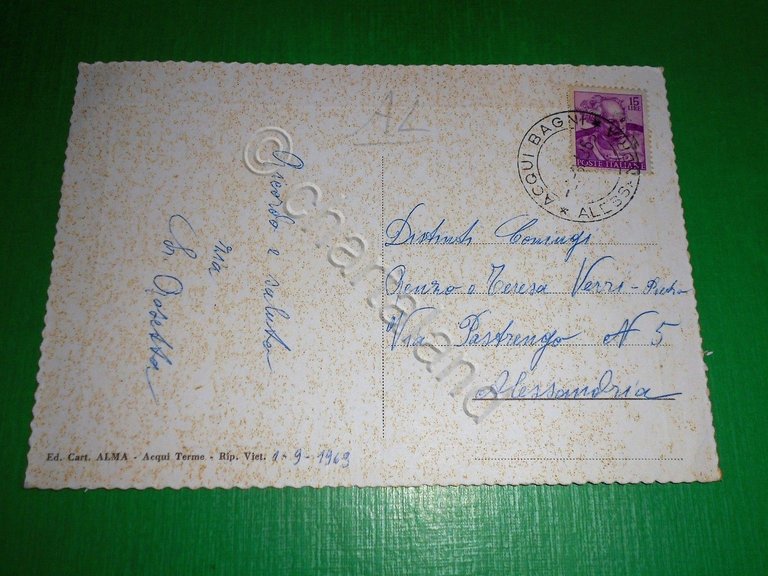 AL
15
LIRE
POSTE ITALIANE
ACQUI BAGNI * ALESSANDRIA *
Ricordo e saluto
zia
Sr. Rosetta
Distinti Coniugi
Renzo e Teresa Verri - Pietro
Via Pastrengo N 5
Alessandria
Ed. Cart. ALMA - Acqui Terme - Rip. Viet. 1-9-1969
© chartaland